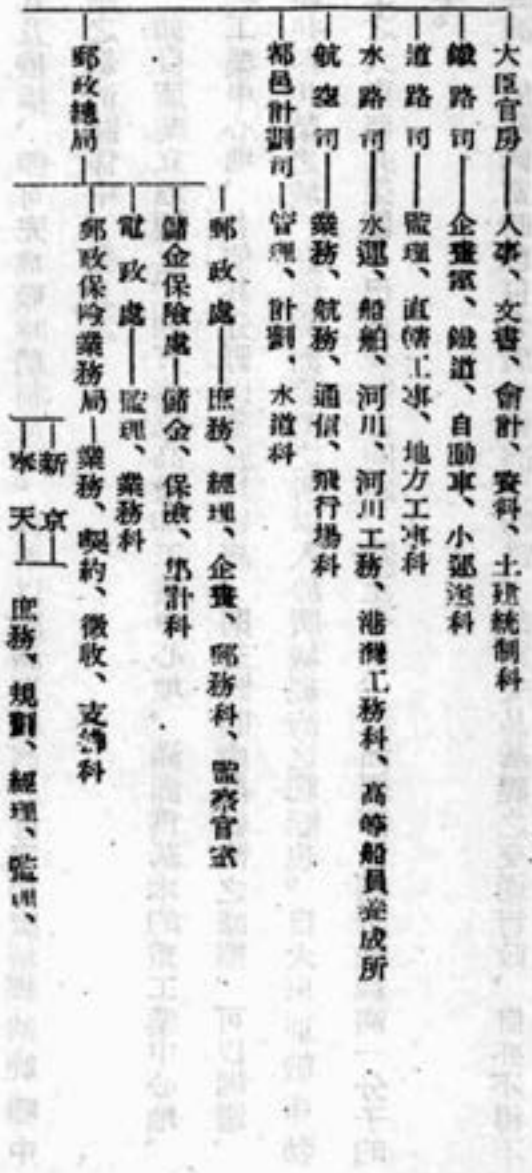 大臣官房——人事、文書、會計、資料、土建統制科
鐵路司——企畫室、鐵道、自動車、小運送科
道路司——監理、直轄工事、地方工事科
水路司——水運、船舶、河川、河川工務、港灣工務科、高等船員養成所
航空司——業務、航務、通信、飛行場科
都邑計劃司—管理、計劃、水道科
郵政總局
郵政處——庶務、經理、企畫、郵務科、監察官室
儲金保險處—儲金、保險、集計科
電政處——監理、業務科
郵政保險業務局—業務、契約、徵收、支拂科
新京
奉天
庶務、規劃、經理、監理、